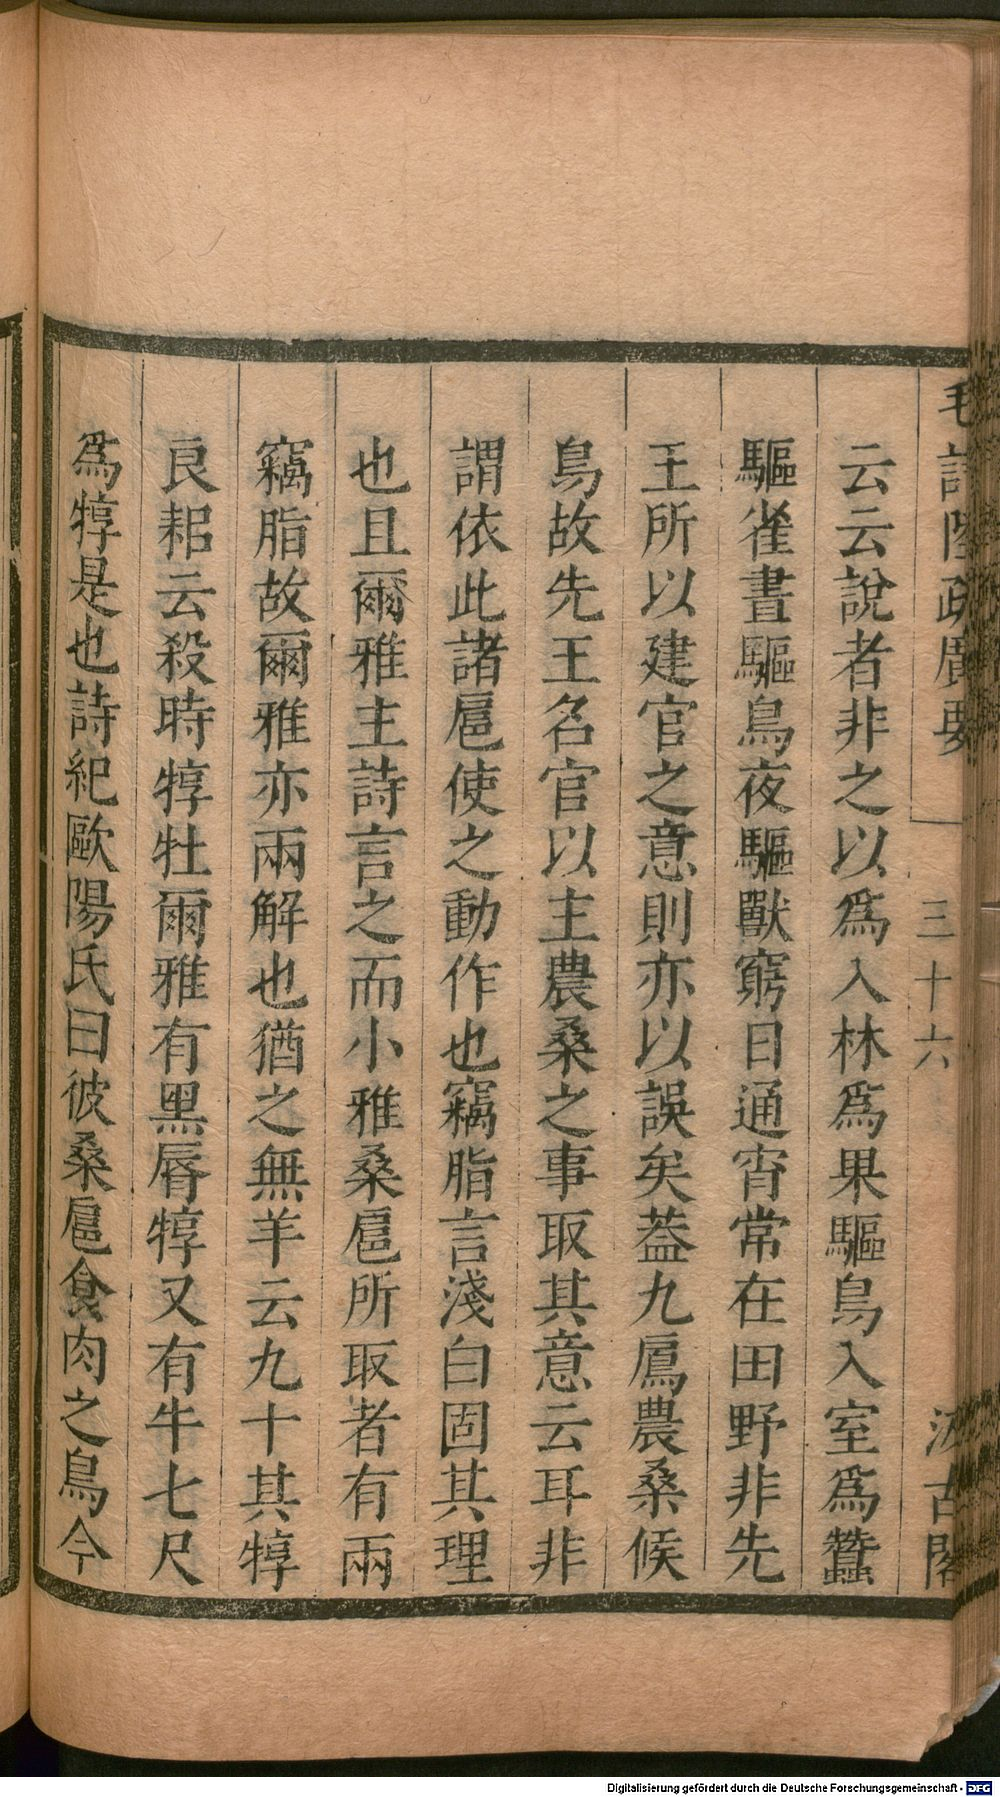 毛詩陸疏廣要
三十六
汲古閣
云云說者非之以爲入林爲果驅鳥入室爲蠶
驅雀晝驅鳥夜驅獸窮日通宵常在田野非先
王所以建官之意則亦以誤矣葢九鳸農桑候
鳥故先王名官以主農桑之事取其意云耳非
謂依此諸扈使之動作也竊脂言淺白固其理
也且爾雅主詩言之而小雅桑扈所取者有兩
竊脂故爾雅亦兩解也猶之無羊云九十其犉
良耜云殺時犉牡爾雅有黑脣犉又有牛七尺
爲犉是也詩紀歐陽氏曰彼桑扈食肉之鳥今
Digitalisierung gefördert durch die Deutsche Forschungsgemeinschaft - DFG